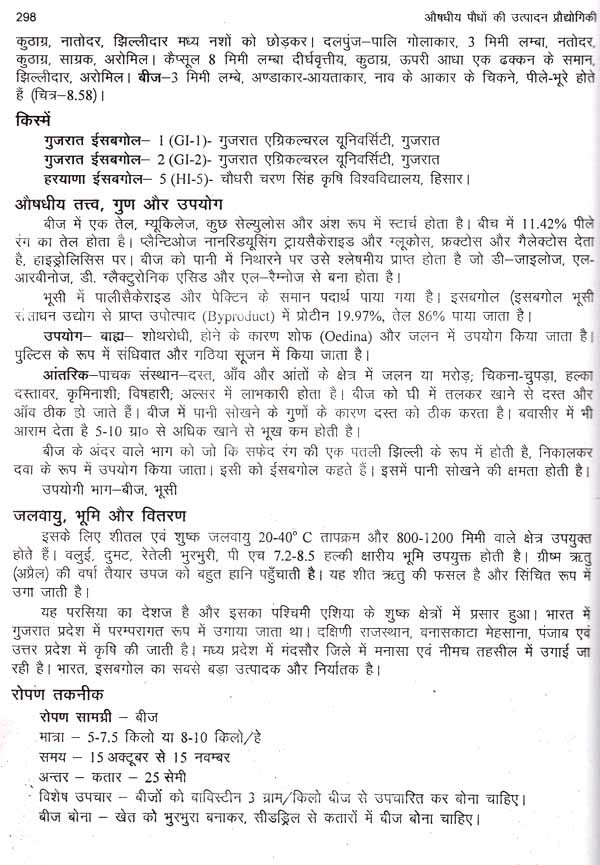 298
औषधीय पौधों की उत्पादन प्रौद्योगिकी
कुठाग्र, नातोदर, झिल्लीदार मध्य नशों को छोड़कर। दलपुंज–पालि गोलाकार, 3 मिमी लम्बा, नतोदर,
कुठाग्र, साग्रक, अरोमिल। कैप्सूल 8 मिमी लम्बा दीर्घवृत्तीय, कुठाग्र, ऊपरी आधा एक ढक्कन के समान,
झिल्लीदार, अरोमिल। बीज–3 मिमी लम्बे, अण्डाकार-आयताकार, नाव के आकार के चिकने, पीले-भूरे होते
हैं (चित्र–8.58)।
किस्में
गुजरात ईसबगोल– 1 (GI-1)- गुजरात एग्रिकल्चरल यूनिवर्सिटी, गुजरात
गुजरात ईसबगोल– 2 (GI-2)- गुजरात एग्रिकल्चरल यूनिवर्सिटी, गुजरात
हरयाणा ईसबगोल– 5 (HI-5)- चौधरी चरण सिंह कृषि विश्वविद्यालय, हिसार।
औषधीय तत्त्व, गुण और उपयोग
बीज में एक तेल, म्यूकिलेज, कुछ सेल्युलोस और अंश रूप में स्टार्च होता है। बीच में 11.42% पीले
रंग का तेल होता है। प्लैन्टिओज नानरिडयूसिंग ट्रायसैकेराइड और ग्लूकोस, फ्रक्टोस और गैलेक्टोस देता
है, हाइड्रोलिसिस पर। बीज को पानी में निथारने पर उसे श्लेषमीय प्राप्त होता है जो डी–जाइलोज, एल-
आरबीनोज, डी. ग्लैक्टुरोनिक एसिड और एल–रैम्नोज से बना होता है।
भूसी में पालीसैकेराइड और पेक्टिन के समान पदार्थ पाया गया है। इसबगोल (इसबगोल भूसी
संसाधन उद्योग से प्राप्त उपोत्पाद (Byproduct) में प्रोटीन 19.97%, तेल 86% पाया जाता है।
उपयोग– बाह्य– शोथरोधी, होने के कारण शोफ (Oedina) और जलन में उपयोग किया जाता है।
पुल्टिस के रूप में संधिवात और गठिया सूजन में किया जाता है।
आंतरिक–पाचक संस्थान–दस्त, आँव और आंतों के क्षेत्र में जलन या मरोड़; चिकना-चुपड़ा, हल्का
दस्तावर, कृमिनाशी; विषहारी; अल्सर में लाभकारी होता है। बीज को घी में तलकर खाने से दस्त और
आँव ठीक हो जाते हैं। बीज में पानी सोखने के गुणों के कारण दस्त को ठीक करता है। बवासीर में भी
आराम देता है 5-10 ग्रा० से अधिक खाने से भूख कम होती है।
बीज के अंदर वाले भाग को जो कि सफेद रंग की एक पतली झिल्ली के रूप में होती है, निकालकर
दवा के रूप में उपयोग किया जाता। इसी को ईसबगोल कहते हैं। इसमें पानी सोखने की क्षमता होती है।
उपयोगी भाग–बीज, भूसी
जलवायु, भूमि और वितरण
इसके लिए शीतल एवं शुष्क जलवायु 20-40° C तापक्रम और 800-1200 मिमी वाले क्षेत्र उपयुक्त
होते हैं। वलुई, दुमट, रेतीली भुरभुरी, पी एच 7.2-8.5 हल्की क्षारीय भूमि उपयुक्त होती है। ग्रीष्म ऋतु
(अप्रैल) की वर्षा तैयार उपज को बहुत हानि पहुँचाती है। यह शीत ऋतु की फसल है और सिंचित रूप में
उगा जाती है।
यह परसिया का देशज है और इसका पश्चिमी एशिया के शुष्क क्षेत्रों में प्रसार हुआ। भारत में
गुजरात प्रदेश में परम्परागत रूप में उगाया जाता था। दक्षिणी राजस्थान, वनासकाटा मेहसाना, पंजाब एवं
उत्तर प्रदेश में कृषि की जाती है। मध्य प्रदेश में मंदसौर जिले में मनासा एवं नीमच तहसील में उगाई जा
रही है। भारत, इसबगोल का सबसे बड़ा उत्पादक और निर्यातक है।
रोपण तकनीक
रोपण सामग्री – बीज
मात्रा – 5-7.5 किलो या 8-10 किलो/हे
समय – 15 अक्टूबर से 15 नवम्बर
अन्तर – कतार – 25 सेमी
विशेष उपचार – बीजों को वाविस्टीन 3 ग्राम/किलो बीज से उपचारित कर बोना चाहिए।
बीज बोना – खेत को भुरभुरा बनाकर, सीडड्रिल से कतारों में बीज बोना चाहिए।